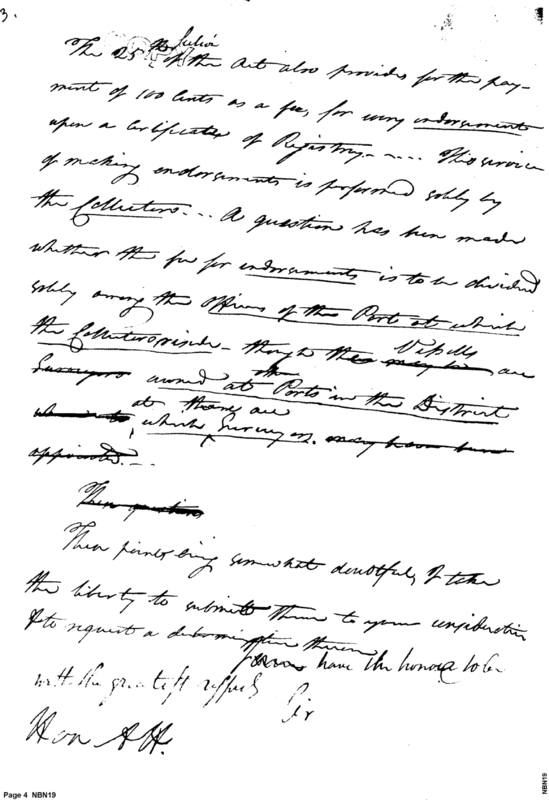 3.
The 25th Section of the Act also provides for the pay-
ment of 100 Cents as a fee, for every endorsement
upon a Certificate of Registry. - - - - This service
of making endorsements is performed solely by
the Collectors. - - A question has been made
whether the fee for endorsements is to be divided
solely among the Officers of the Port at which
the Collectors reside - though the Vessells are
owned at other Ports in the District
at which there are Surveyors.
These points being somewhat doubtful, I take
the liberty to submitt them to your consideration
& to request a determination therein
I have the honor to be
with the greatest respect
Sir
Hon A H.
Page 4 NBN19
NBN19